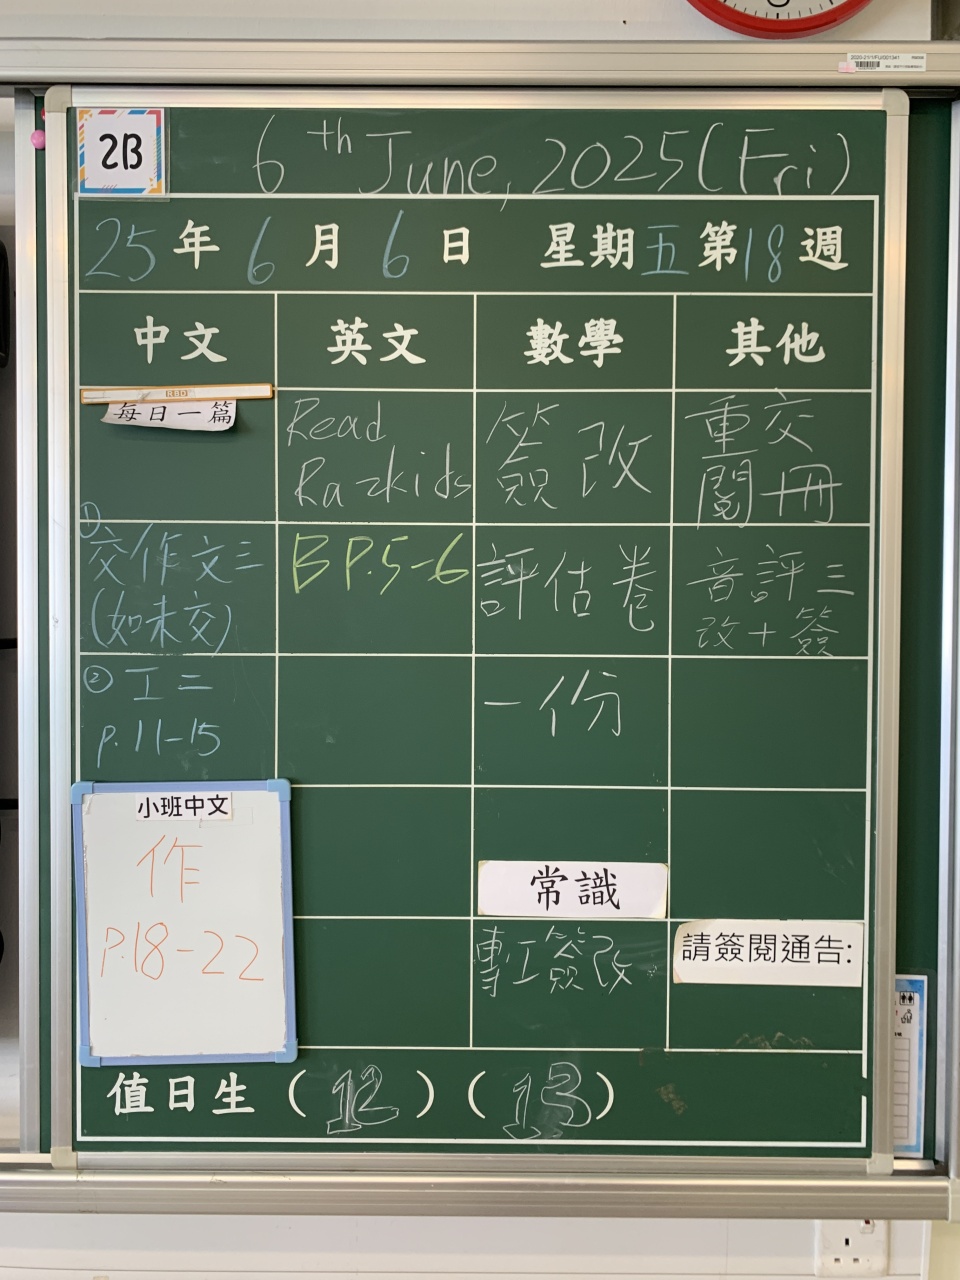 2B
6th June, 2025 (Fri)
25年6月6日 星期五第18週
中文 英文 數學 其他
每日一篇
① 交作文三
(如未交)
② 工二
p.11-15
小班中文
作
P.18-22
Read
Razkids
B P.5-6
簽改
評估卷
一份
常識
專工簽改
重交
閱冊
音評三
改+簽
請簽閱通告:
值日生 (12) (13)